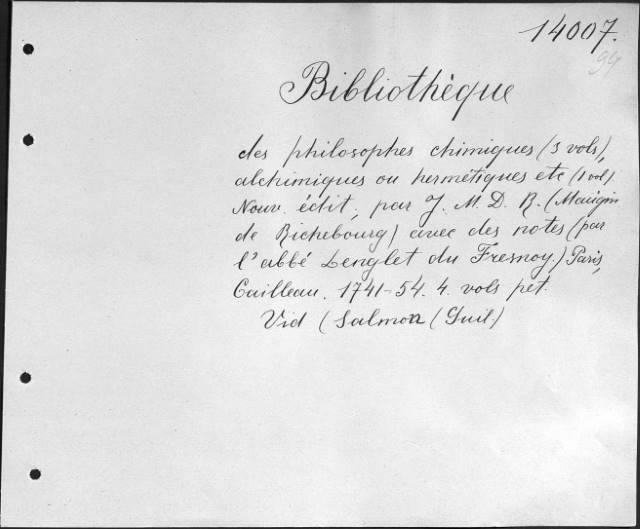 14007.
94
Bibliothèque
des philosophes chimiques (3 vols),
alchimiques ou hermétiques etc (1 vol).
Nouv. édit, par J. M. D. R. (Maugin
de Richebourg) avec des notes (par
l'abbé Lenglet du Fresnoy.) Paris,
Cailleau. 1741-54. 4. vols pet.
Vid (Salmon (Guil)